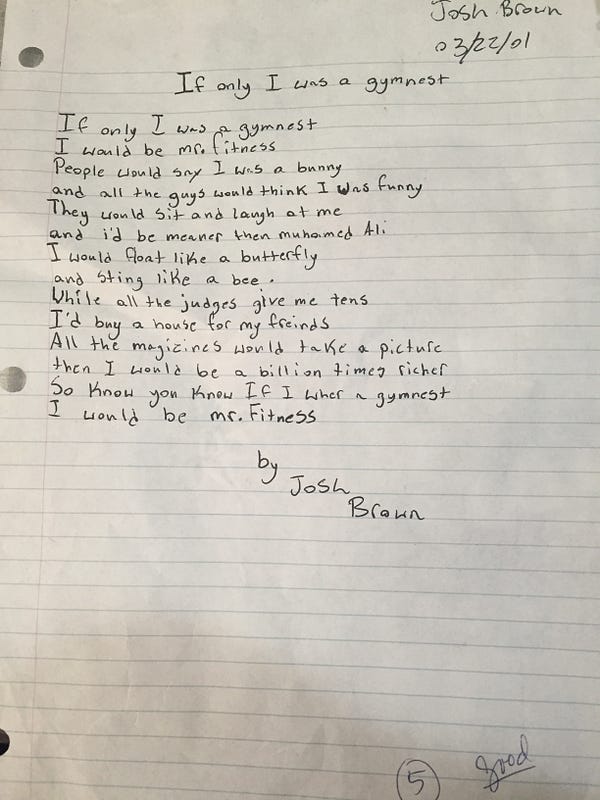 Josh Brown
03/22/01
If only I was a gymnest
If only I was a gymnest
I would be mr. fitness
People would say I was a bunny
and all the guys would think I was funny
They would sit and laugh at me
and i'd be meaner then muhamed Ali
I would float like a butterfly
and sting like a bee.
While all the judges give me tens
I'd buy a house for my freinds
All the magizines would take a picture
then I would be a billion times richer
So know you know If I wher a gymnest
I would be mr. Fitness
by
Josh
Brown
5 good